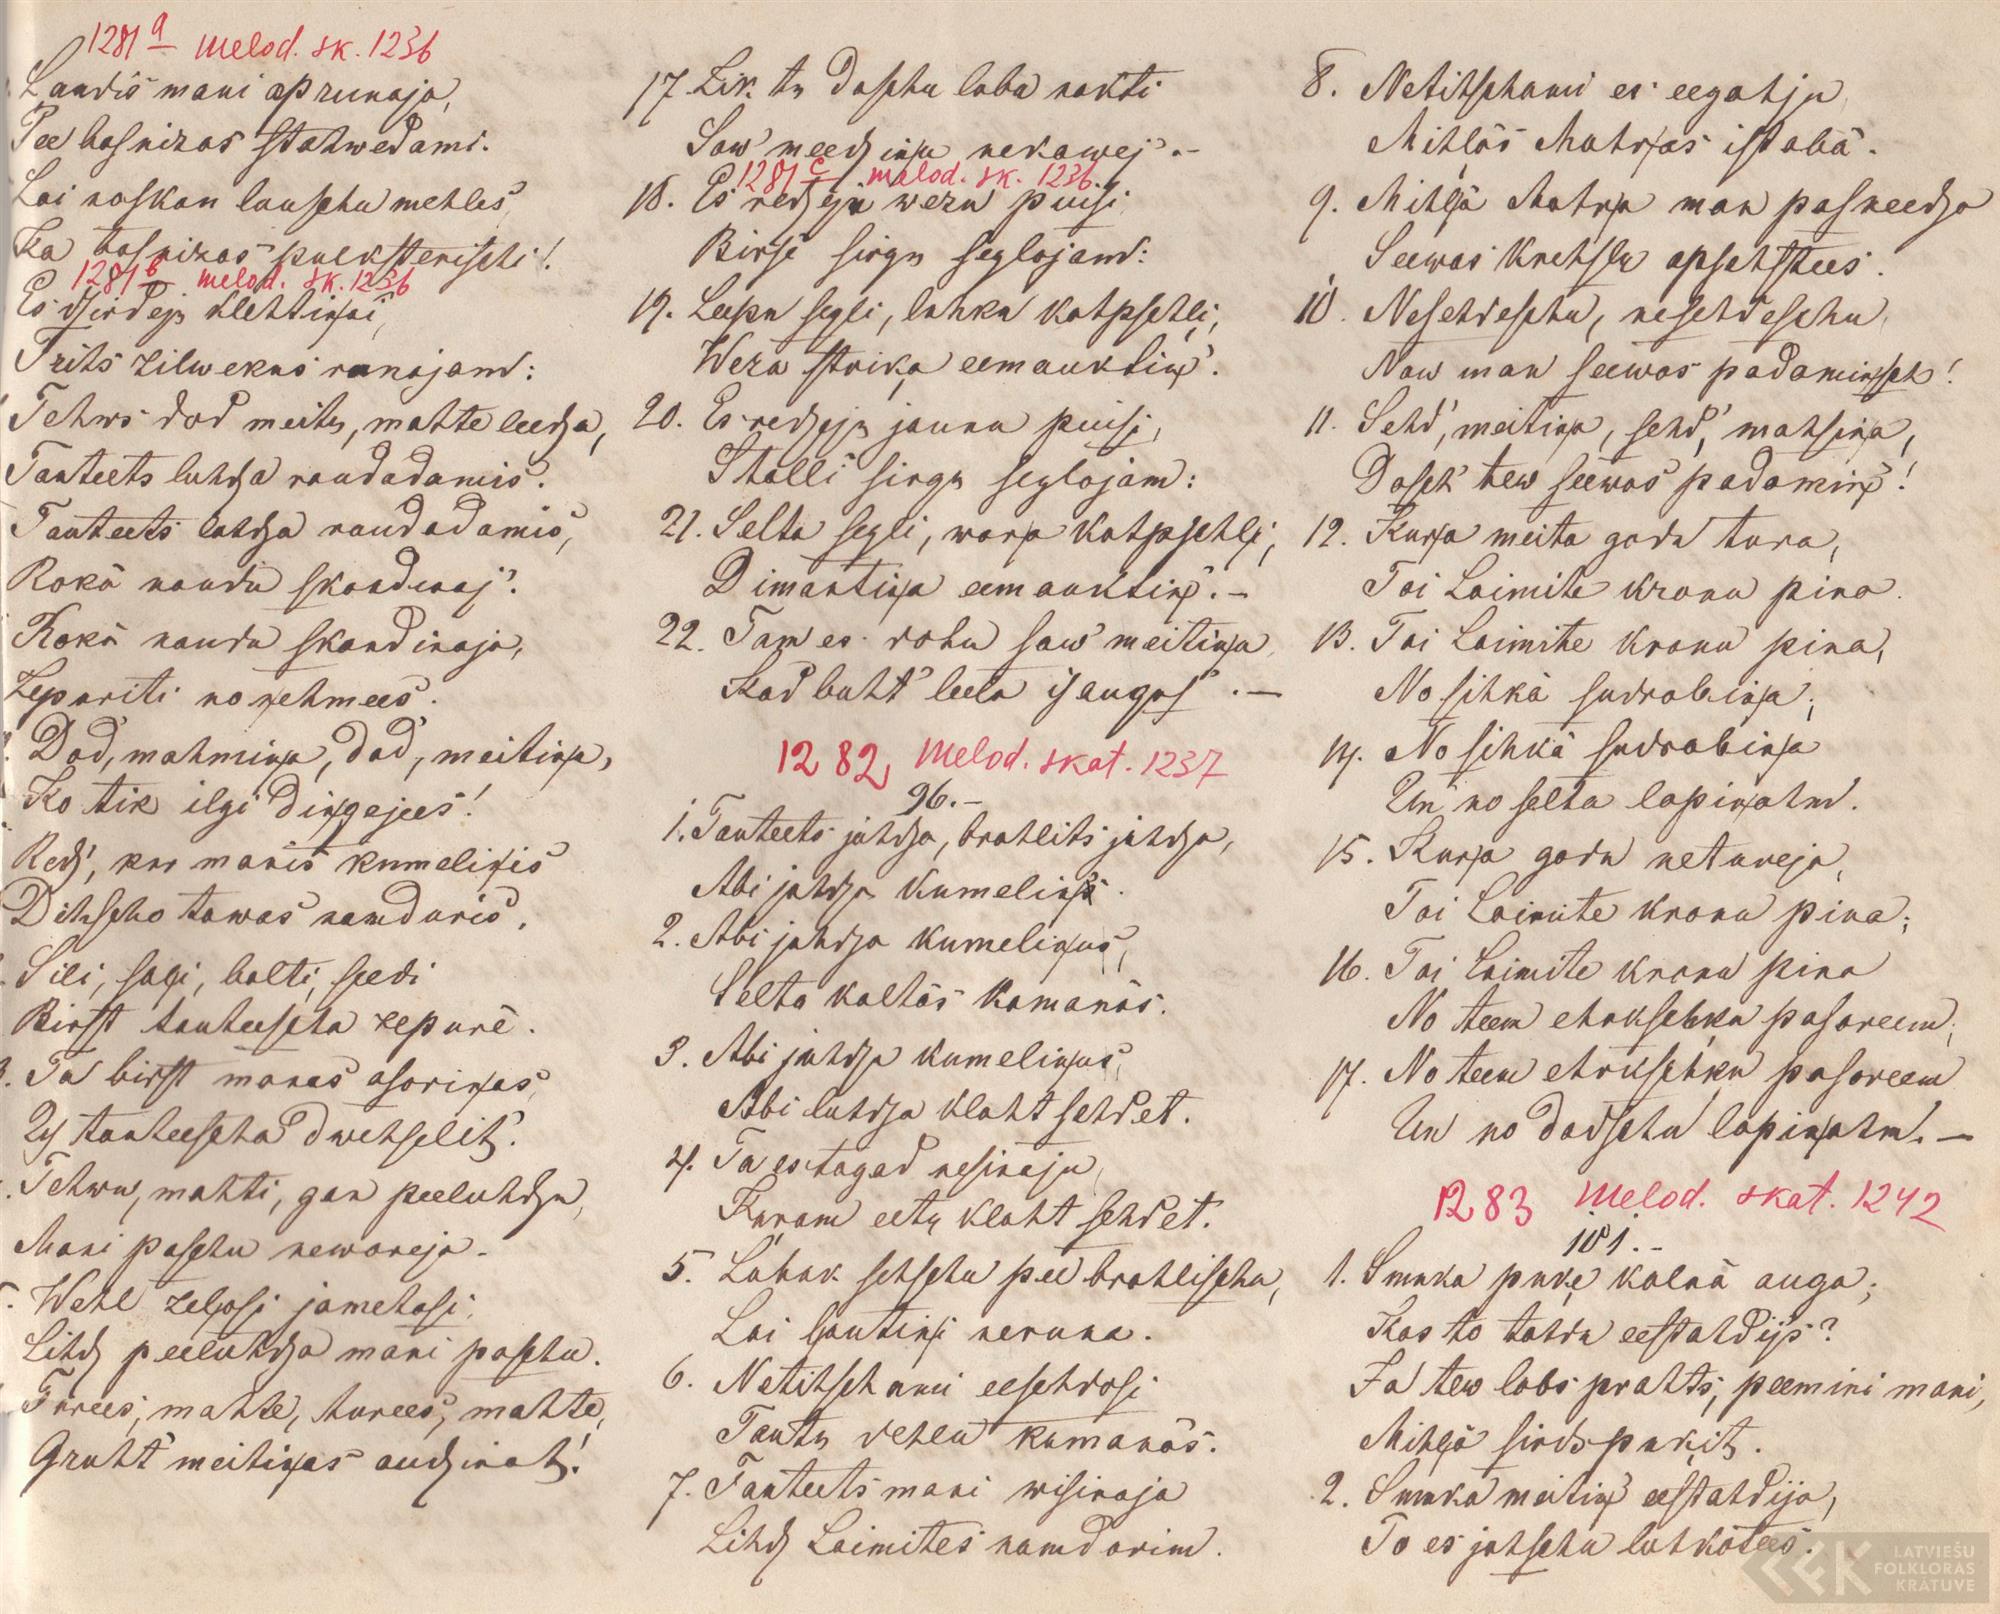 1281 a melod. sk. 1236
Laudis mani aprunaja,
Pee basnizas stahwedami.
Lai noskan lauschu mehles,
Ka basnizas pulkstenischi!
1281 b melod. sk. 1236
Es dsirdeju klehtiņai,
Trihs zilwekus runajam:
Tehws dod meitu, mahte leedsa,
Tauteets luhdsa raudadamis.
Tauteets luhdsa raudadamis,
Rokâ naudu skandinaj'.
Rokâ naudu skandinaja,
Zepuriti noņehmees.
Dod, mahmiņa, dod, meitiņa,
Ko tik ilgi diņgejees!
Reds', kur manis kumeliņis
Dihscho tawas namduris.
Sili, saļi, balti seedi
Birst tauteescha zepurē.
Tà birst manas asoriņas,
Us tauteescha dwehselit'.
Tehwu, mahti, gan peeluhdsu,
Mani paschu newareja.
Wehl zeļosi jamehasi,
Lihds peeluhdsa mani paschu.
Turees, mahte, turees, mahte,
Gruht' meitiņas audsinat!
17. Lik tu daschu labu nakti
Saw' meedsiņu nekawej'. –
1281 c melod. sk. 1236
18. Es redseju wezu puisi
Birsē sirgu seglojam:
19. Leepu segli, luhku kahpschļi,
Weza strika eemauktiņ'.
20. Es redseju jaunu puisi,
Stalli sirgu seglojam:
21. Selta segli, waŗa kahpschļi,
Dimantiņa eemauktiņ'. –
22. Tam es dohu saw' meitiņu,
Kad buht' leela isaugus'. –
1282, melod. skat. 1237
96. –
1. Tauteets juhdsa, brahlits juhdsa,
Abi juhdsa kumeliņ's.
2. Abi juhdsa kumeliņus,
Selta kaltâs kamanâs.
3. Abi juhdsa kumeliņus,
Abi luhdsa klaht sehdet.
4. Ta es tagad nesinaju,
Kuram eetu klaht sehdet.
5. Labak sehschu pee brahlischa,
Lai ļautiņi neruna.
6. Netihschami eesehdosi
Tautu dehlu kamanâs.
7. Tauteets mani wisinaja
Lihds Laimites namdarim.
8. Netihschami es eegahju
Mihļâs Mahŗas istabâ.
9. Mihļâ Mahŗa man pasneedsa
Seewas krehslu apsehstees.
10. Nesehdeschu, nesehdeschu,
Naw man seewas padomiņsch!
11. Sehd', meitiņa, sehd', mahsiņa,
Dosch' tew seewas padomiņ'!
12. Kuŗa meita godu tura,
Tai Laimite kronu pina.
13. Tai Laimite kronu pina,
No sihkâ sudrabiņa;
14. No sihkâ sudrabiņa
Un no selta lapiņahm.
15. Kuŗa godu netureja,
Tai Laimite kronu pina;
16. Tai Laimite kronu pina
No teem ehrkschķu pasareem;
17. No teem ehrkschķu pasareem
Un no dadschu lapiņahm. –
1283 melod. skat. 1242
101. –
1. Smuka puķe kalnâ auga;
Kas to tahdu eestahdijs?
Ja tew labs prahts, peemini mani,
Mihļâ sirds puķit.
2. Smuka meitiņ' eestahdija,
To es jahschu luhkotees.
LATVIEŠU
FOLKLORAS
KRĀTUVE